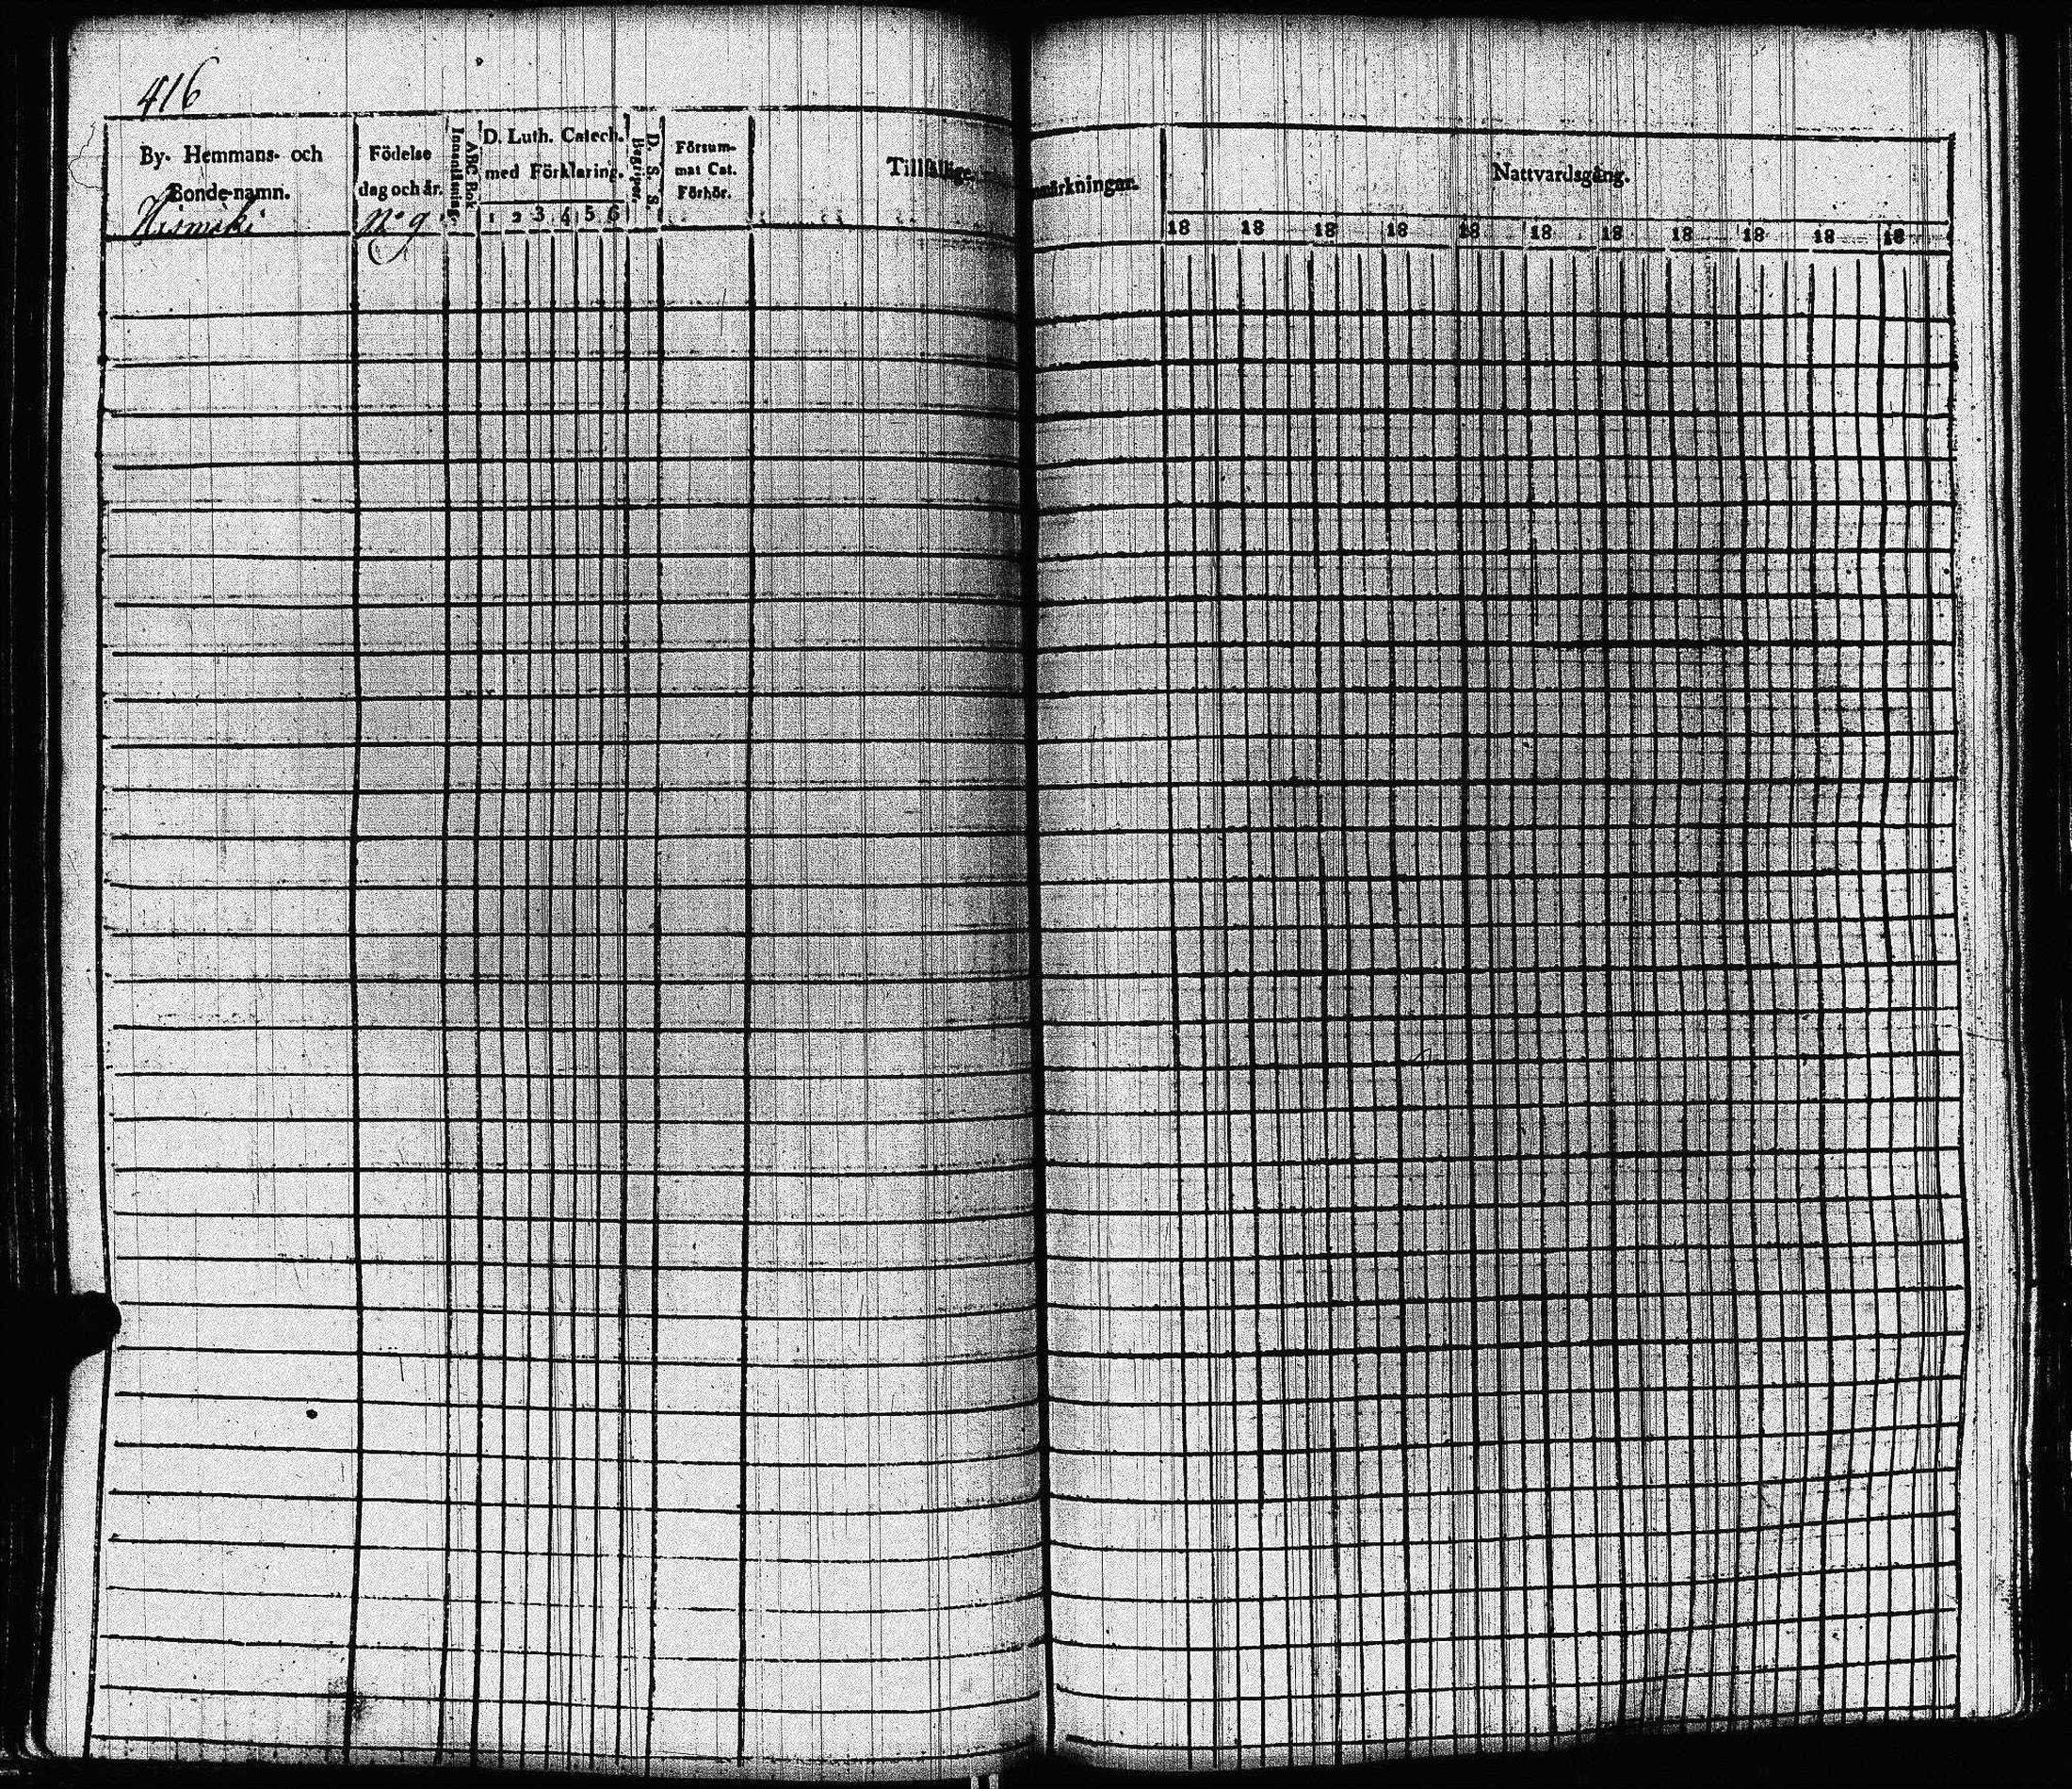 416
By- Hemmans- och
Bonde-namn.
Födelse
dag och år.
No 9
Innanläsning.
ABC Bok
D. Luth. Catech.
med Förklaring.
1 2 3 4 5 6
Begriper.
D. S. S.
Försum-
mat Cat.
Förhör.
Tillfällige
märkningar.
Nattvardsgång.
18 18 18 18 18 18 18 18 18 18 18